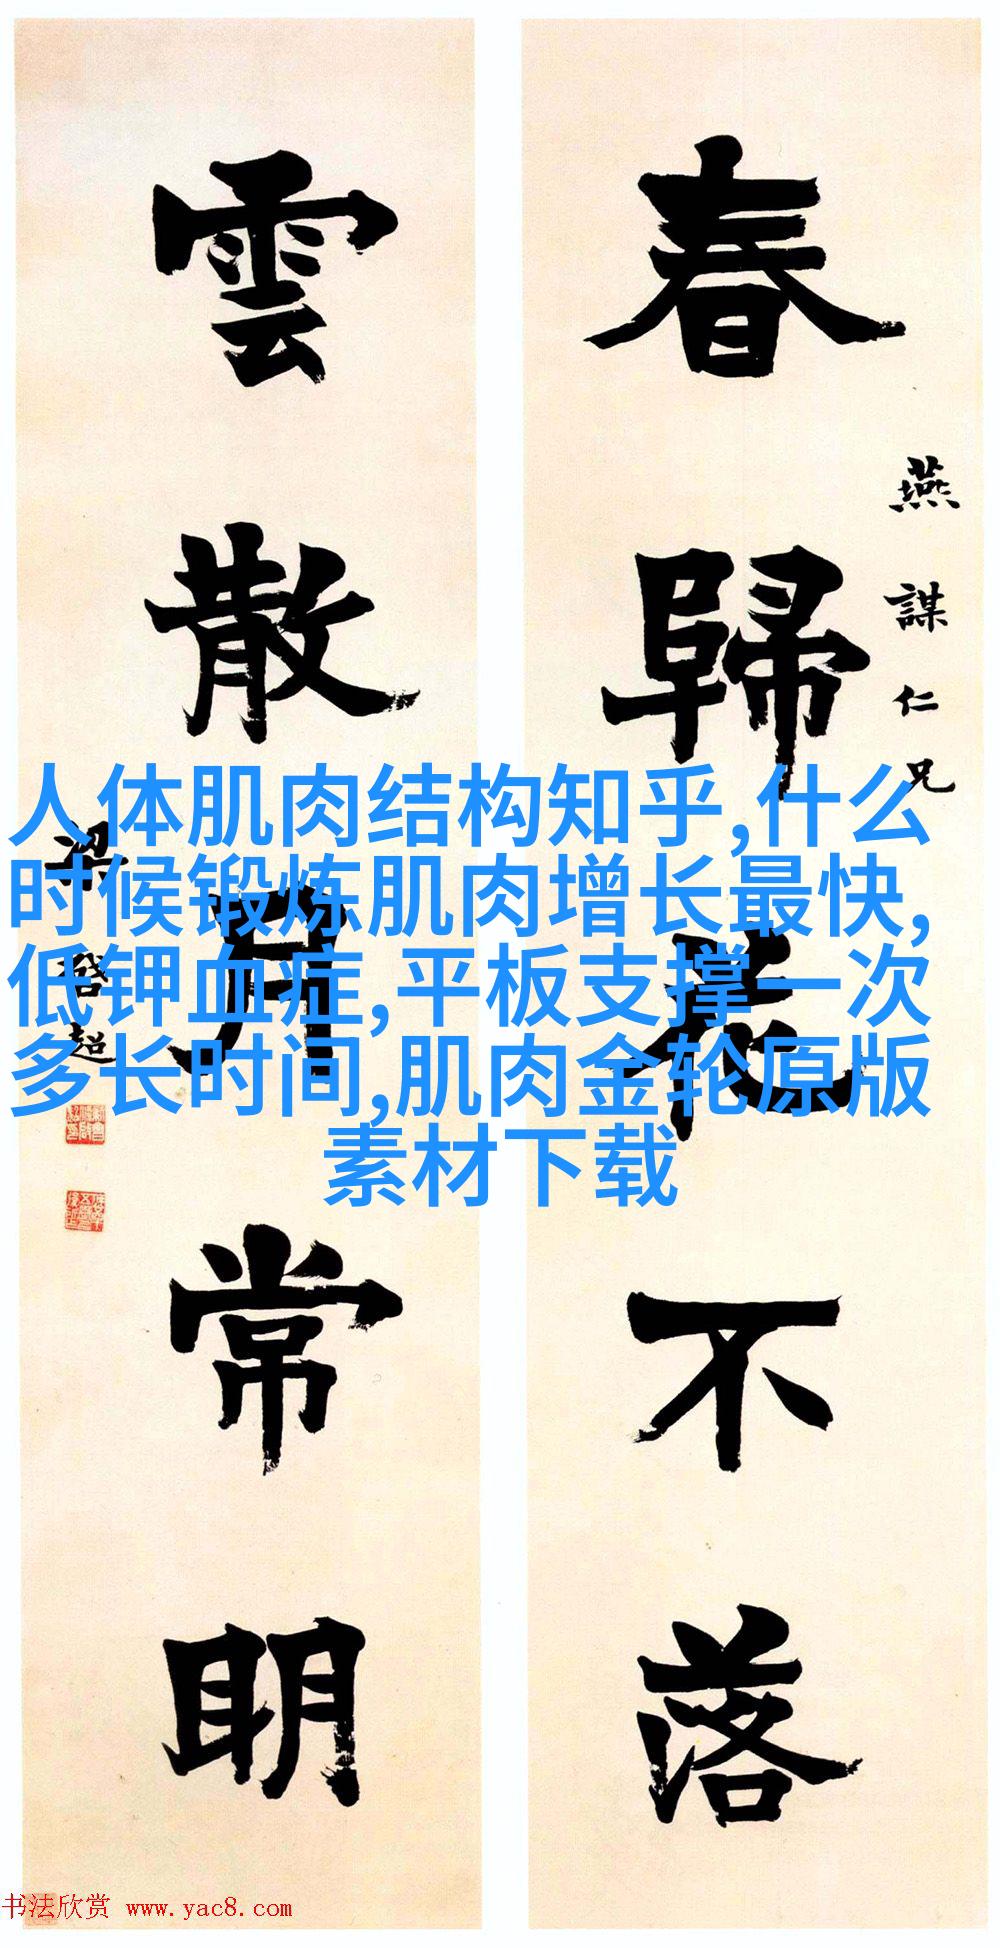 春歸花不落
燕謀仁兄
雲散月常明
梁啟超
人体肌肉结构知乎,什么
时候锻炼肌肉增长最快,
低钾血症,平板支撑一次
多长时间,肌肉金轮原版
素材下载
书法欣赏 www.yac8.com